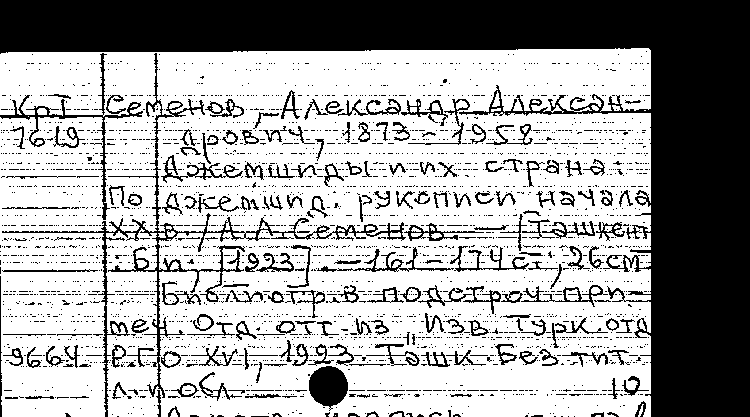 КрТ Семенов, Александр Алексан-
7619 дрович, 1873-1958.
Джемшиды и их страна:
По джемшид. рукописи начала
XX в. / А.А. Семенов. — [Ташкент
: Б.и., [1923]. — 161-174 с.; 26см
Библиогр. в подстроч. при-
меч. Отд. отт. из "Изв. Турк. отд
9664 Р.Г.О. XVI, 1923. Ташк. Без тит.
л. и обл. 10